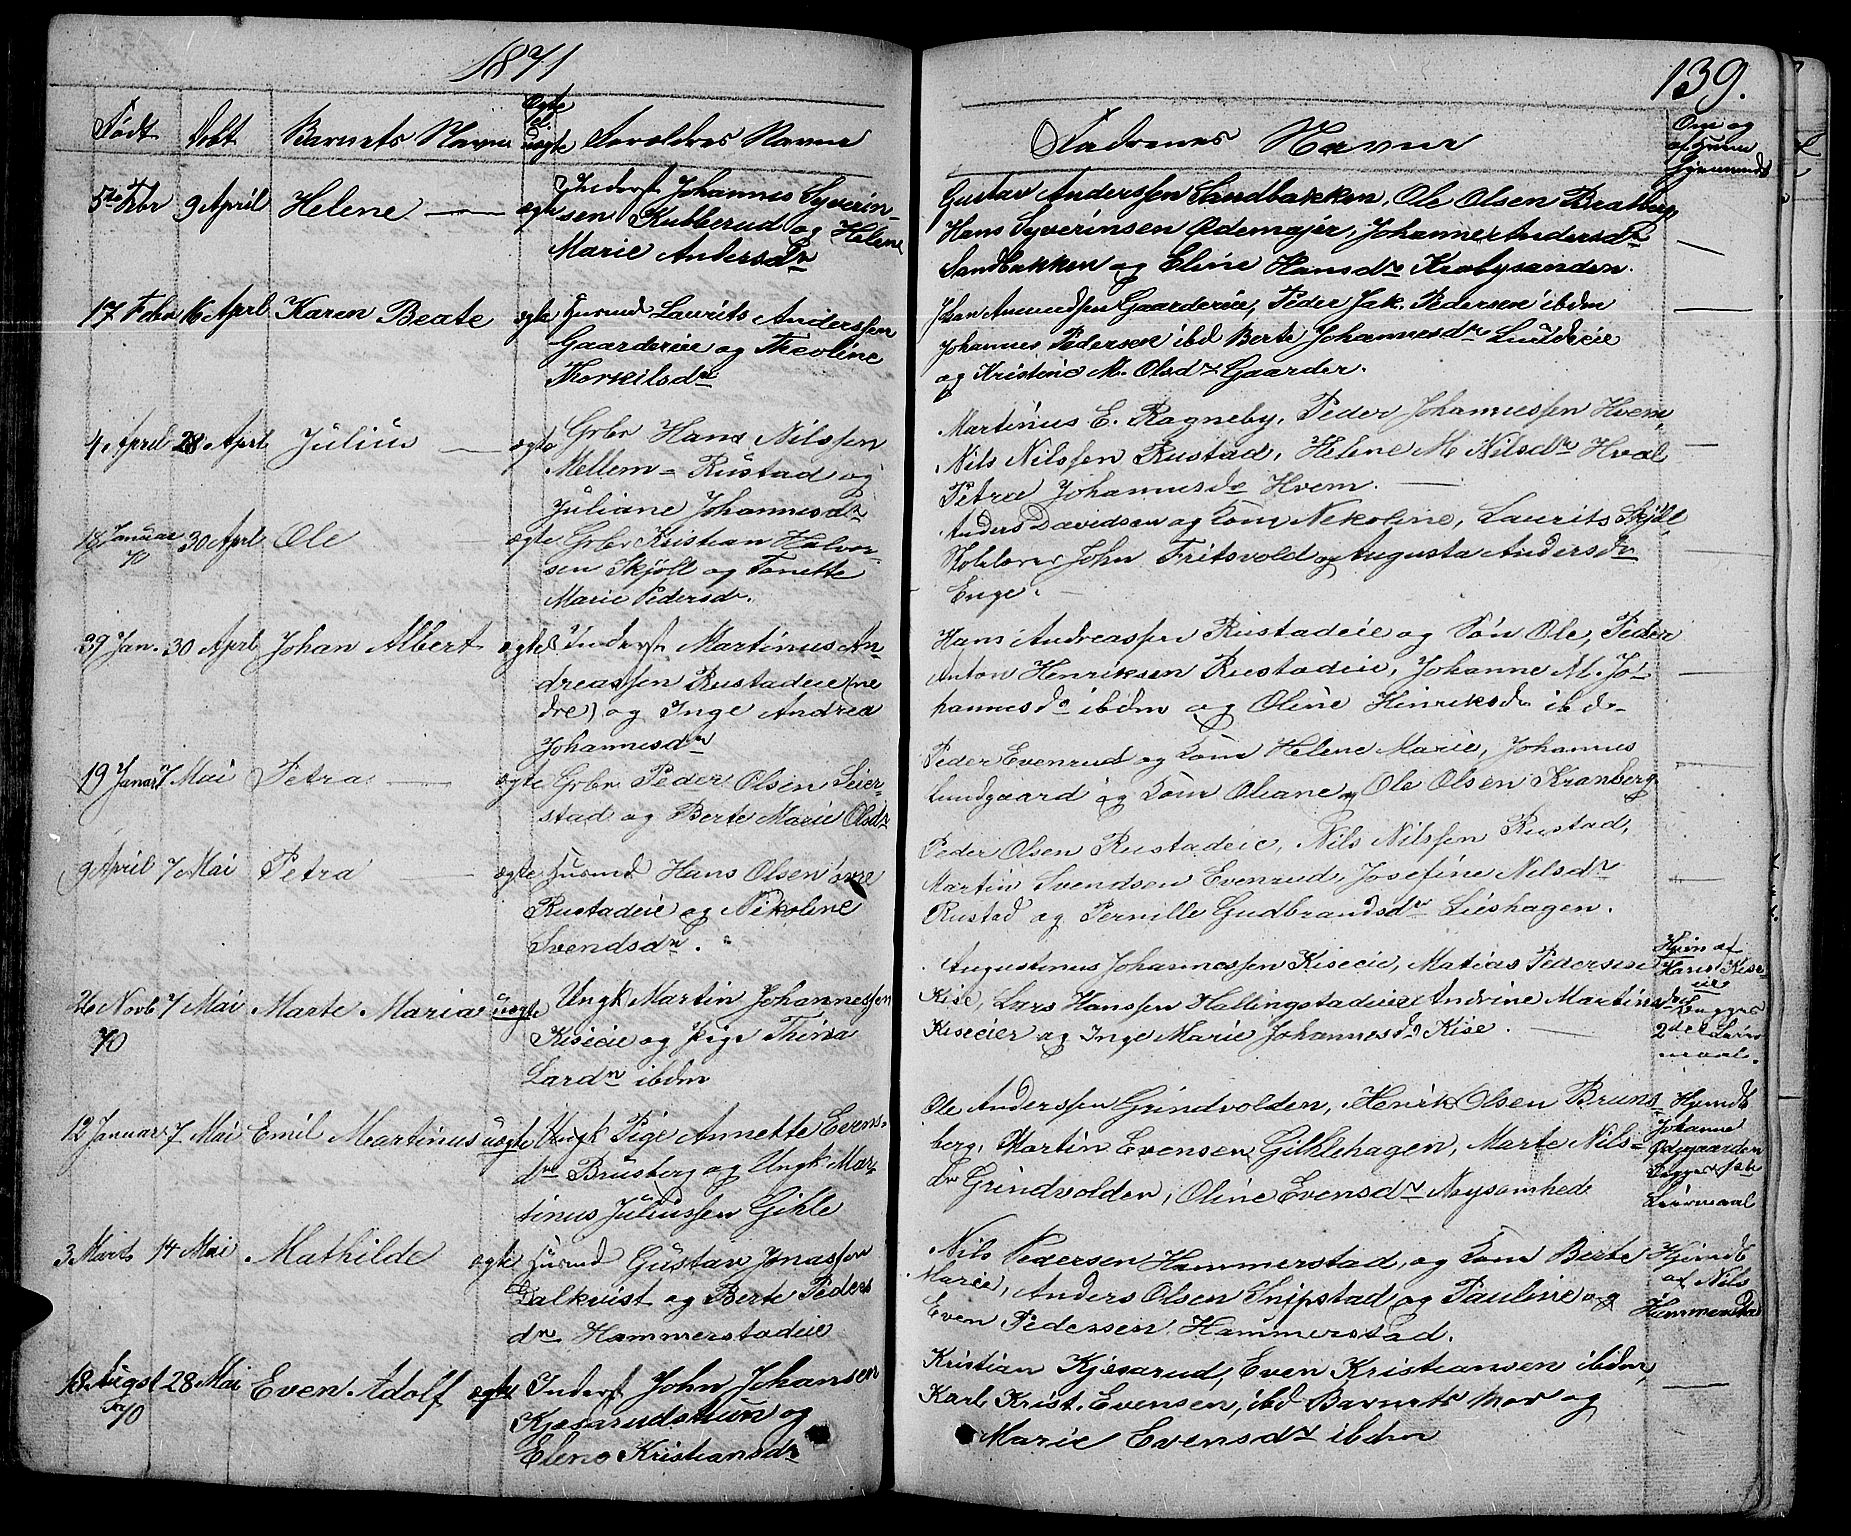 1871
139.
Født Døbt Barnets Navn Ægte el. Uægte Forældres Navne
Faddernes Navne
Om og af hvem hjemmed.
5te Febr 9 April Helene — ægte Inderst Johannes Syverin-
sen Kubberud og Helene
Marie Andersdr
Gustav Anderssen Sandbakken, Ole Olsen Bratberg
Hans Syverinsen Ødemajer, Johanne Andersdr
Sandbakken og Eline Hansdr Krabysanden.
17 Febr 16 Aprl Karen Beate ægte Husmd Laurits Anderssen
Gaardereie og Theoline
Thorkilsdr
Gaardereie, Peder Jak. Pedersen ibdm
Johannes Pedersen ibd Berte Johannesdr
og Kristine M. Olsdr Gaarder.
4 April 28 Aprl Julius — ægte Grbr Hans Nilssen
Mellem-Rustad og
Juliane Johannesdr
Martinus E. Ragneby, Peder Johannessen Hvem,
Nils Nilssen Rustad, Helene M Nilsdr Hval
Petrea Johannesdr Hvem. —
18 Januar 70 30 Aprl Ole — ægte Grbr Kristian Halvor-
sen Skjøll og Tonette
Marie Pedersdr.
Anders Davidsen og Kone Nekoline, Laurits Skjøll,
John Fritsvold og Augusta Andersdr
Enge. —
29 Jan. 30 Aprl Johan Albert ægte Inderst Martinus An-
dreassen Rustadeie (ne
dre) og Inge Andrea
Johannesdr
Hans Andreassen Rustadeie og Søn Ole, Peder
Anton Henriksen Rustadeie, Johanne M. Jo-
hannesdr ibdm og Oline Hinriksdr ibd-
19 Januar 7 Mai Petra — ægte Grbr Peder Olsen Seier-
stad og Berte Marie Olsdr
Peder Evenrud og Kone Helene Marie, Johannes
Lundgaard og Kone Oliane og Ole Olsen Kranberg
9 April 7 Mai Petra — ægte Husmd Hans Olsen øvre
Rustadeie og Nikoline
Svendsdr.
Peder Olsen Rustadeie, Nils Nilssen Rustad,
Martin Svendsen Evenrud, Josefine Nilsdr
Rustad og Pernille Gudbrandsdr Lieshagen.
26 Novb 70 7 Mai Marte Maria uægte Ungk Martin Johannessen
Kiseeie og Pige Thina
Larsdr ibdm
Augustinus Johannessen Kiseeie, Matias Pedersen
Kise, Lars Hanssen Hellingstadeie Andrine Martins
Kiseeier og Inge Marie Johannesdr Kise. —
Hjem af
Hans Kise-
eie
Begges
2det Leier-
maal.
12 Januar 7 Mai Emil Martinus uægte Ungk Pige Annette Evens-
dr Brusberg og Ungk Mar-
tinus Juliussen Gihle
Ole Anderssen Grindvolden, Henrik Olsen Bruns-
berg, Martin Evensen Gihlehagen, Marte Nils-
dr Grindvolden, Oline Evensdr Nøysomhed
Hjemdt
Johanne
Ødegaarden
Begges 1ste
Leiermaal
3 Marts 14 Mai Mathilde ægte Husmd Gustav Jonassen
Dalkvist og Berte Peders
dr Hammerstadeie
Nils Pedersen Hammerstad, og Kone Berte
Marie, Anders Olsen Snipstad og Pauline og
Even Pedersen Hammerstad.
Hjemdt
af Nils
Hammerstad
18 Augst 70 28 Mai Even Adolf ægte Inderst John Johansen
Kjøsarudstuen og
Elene Kristiansdr
Kristian Kjøsarud, Even Kristiansen ibdm,
Karl Krist. Evensen, ibd Barnets Mor og
Marie Evensdr ibdm